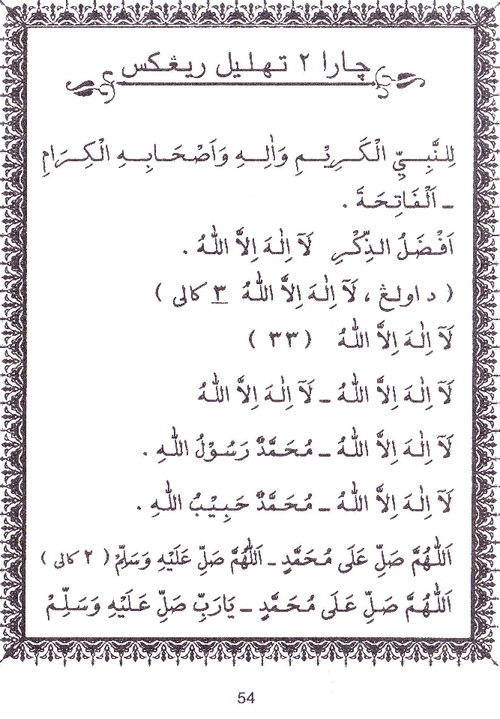 چارا ٢ تهليل ريڠكس
لِلنَّبِـيِّ الْكَرِيْـمِ وَاٰلِـهِ وَاَصْحَابِـهِ الْكِرَامِ
ـ اَلْفَاتِحَةَ .
اَفْضَلُ الذِّكْرِ لَآ اِلٰهَ اِلاَّ اللهُ .
( د اولڠ ، لَآ اِلٰهَ اِلاَّ اللهُ ٣ كالى )
لَآ اِلٰهَ اِلاَّ اللهُ ( ٣٣ )
لَآ اِلٰهَ اِلاَّ اللهُ ـ لَآ اِلٰهَ اِلاَّ اللهُ
لَآ اِلٰهَ اِلاَّ اللهُ ـ مُحَمَّدٌ رَسُوْلُ اللهِ .
لَآ اِلٰهَ اِلاَّ اللهُ ـ مُحَمَّدٌ حَبِيْبُ اللهِ .
اَللّٰهُمَّ صَلِّ عَلَى مُحَمَّدٍ ـ اَللّٰهُمَّ صَلِّ عَلَيْهِ وَسَلِّمْ ( ٢ كالى )
اَللّٰهُمَّ صَلِّ عَلَى مُحَمَّدٍ ـ يَارَبِّ صَلِّ عَلَيْهِ وَسَلِّمْ
54